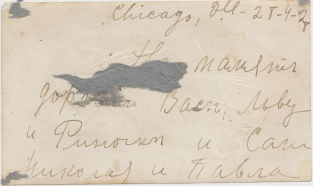 Chicago, Ill - 28-4-28
На память
дорогим Вас. Льву
и Римочки и Саш
Николая и Павла